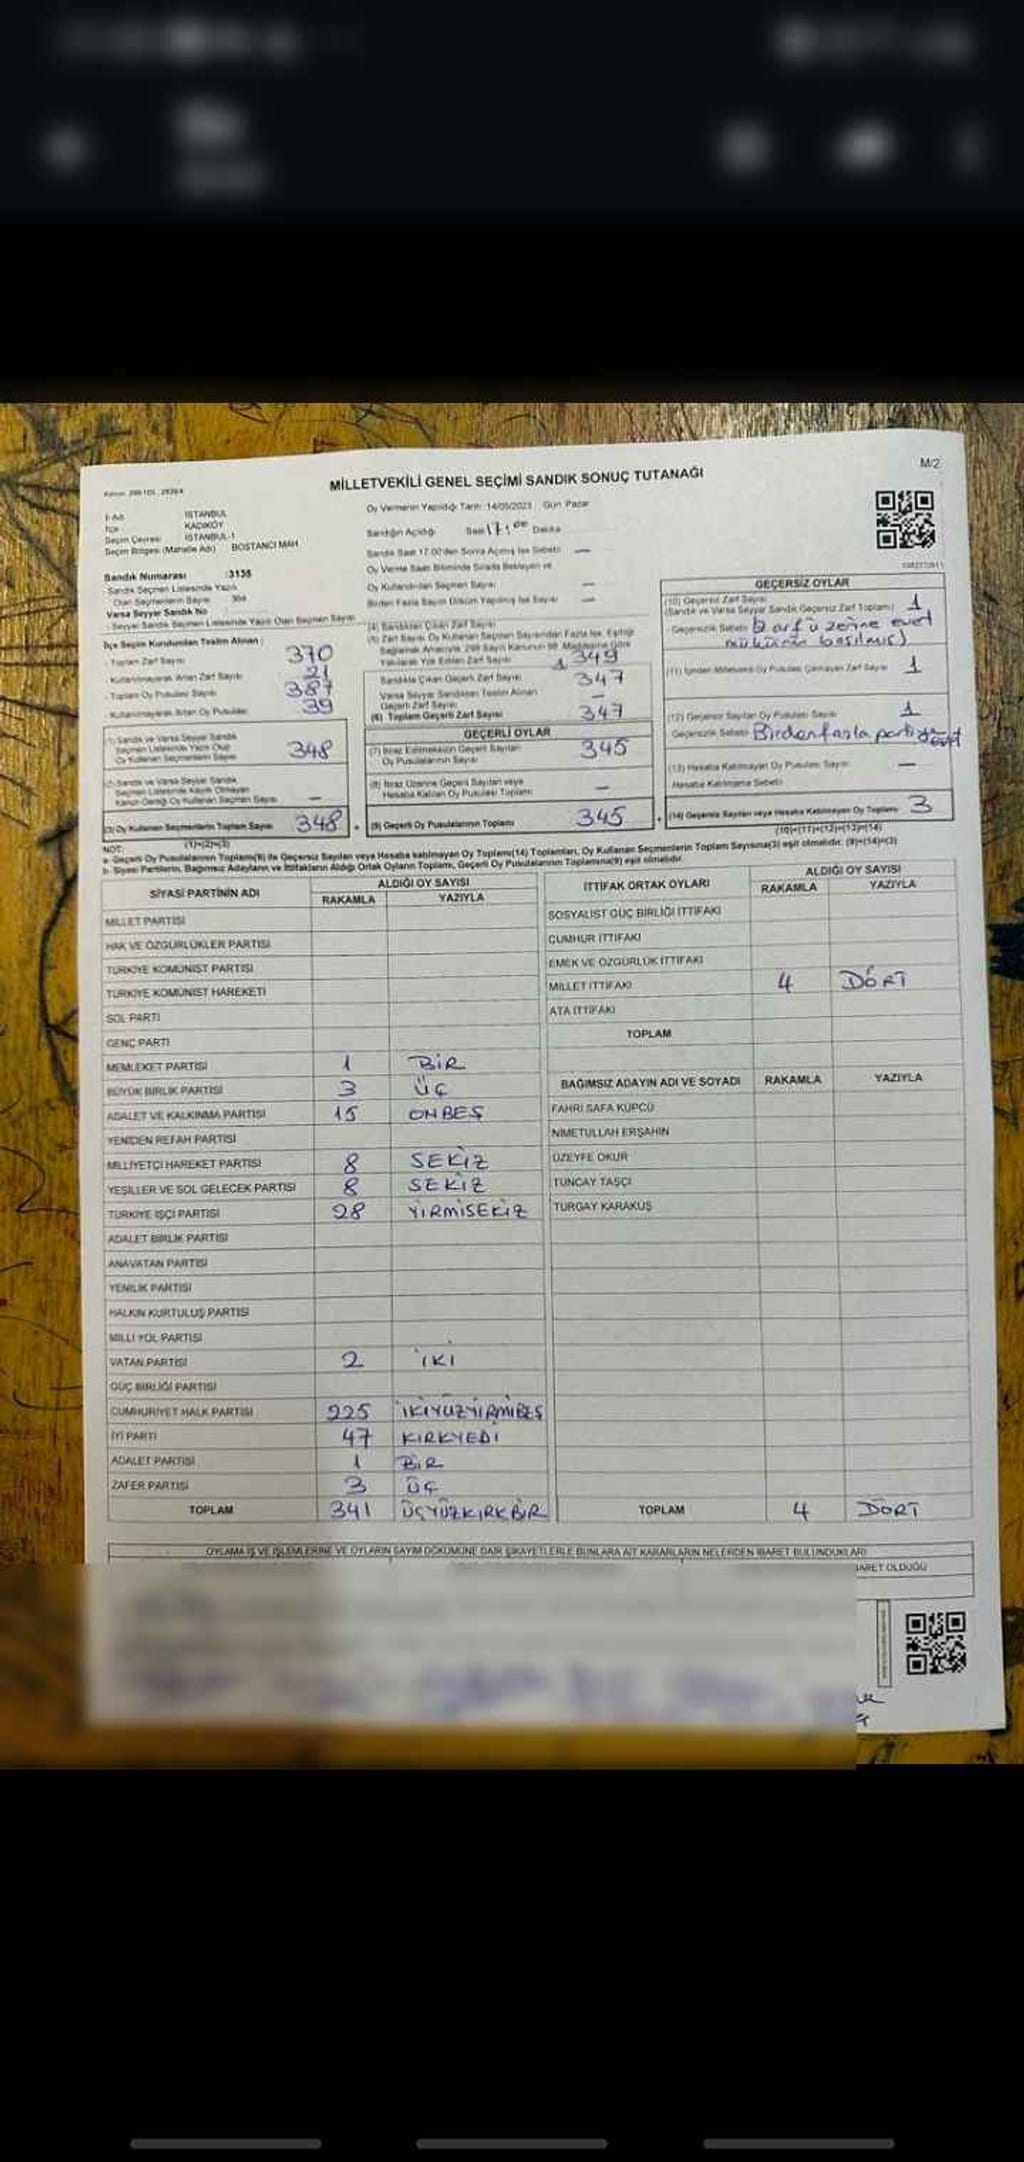 M/2
MİLLETVEKİLİ GENEL SEÇİMİ SANDIK SONUÇ TUTANAĞI
İl Adı : İSTANBUL
İlçe : KADIKÖY
Seçim Çevresi : İSTANBUL-1
Seçim Bölgesi (Mahalle Adı) BOSTANCI MAH
Sandık Numarası :3135
Sandık Seçmen Listesinde Yazılı
Olan Seçmenlerin Sayısı
Varsa Seyyar Sandık No
Seyyar Sandık Seçmen Listesinde Yazılı Olan Seçmen Sayısı
İlçe Seçim Kurulundan Teslim Alınan :
- Toplam Zarf Sayısı 370
- Kullanılmayarak Artan Zarf Sayısı 21
- Toplam Oy Pusulası Sayısı 387
- Kullanılmayarak Artan Oy Pusulası 39
(1) Sandık ve Varsa Seyyar Sandık
Seçmen Listesinde Yazılı Olup
Oy Kullanan Seçmenlerin Sayısı 348
(2) Sandık ve Varsa Seyyar Sandık
Seçmen Listesinde Kayıtlı Olmayan
Kanun Gereği Oy Kullanan Seçmen Sayısı —
(3) Oy Kullanan Seçmenlerin Toplam Sayısı 348
(1)+(2)=(3)
Oy Vermenin Yapıldığı Tarih: 14/05/2023 Gün: Pazar
Sandığın Açıldığı Saat 17:00 Dakika
Sandık Saat 17.00'den Sonra Açılmış İse Sebebi —
Oy Verme Saati Bitiminde Sırada Bekleyen ve
Oy Kullandırılan Seçmen Sayısı —
Birden Fazla Sayım Döküm Yapılmış İse Sayısı —
(4) Sandıktan Çıkan Zarf Sayısı 349
(5) Zarf Sayısı Oy Kullanan Seçmen Sayısından Fazla İse, Eşitliği
Sağlamak Amacıyla, 298 Sayılı Kanunun 98. Maddesine Göre
Yakılarak Yok Edilen Zarf Sayısı 1
Sandıkta Çıkan Geçerli Zarf Sayısı 347
Varsa Seyyar Sandıktan Teslim Alınan
Geçerli Zarf Sayısı —
(6) Toplam Geçerli Zarf Sayısı 347
GEÇERLİ OYLAR
(7) İtiraz Edilmeksizin Geçerli Sayılan
Oy Pusulalarının Sayısı 345
(8) İtiraz Üzerine Geçerli Sayılan veya
Hesaba Katılan Oy Pusulası Toplamı —
(9) Geçerli Oy Pusulalarının Toplamı 345
GEÇERSİZ OYLAR
(10) Geçersiz Zarf Sayısı
(Sandık ve Varsa Seyyar Sandık Geçersiz Zarf Toplamı) 1
Geçersizlik Sebebi (Zarf üzerine evet
mührünün basılmış)
(11) İçinden Milletvekili Oy Pusulası Çıkmayan Zarf Sayısı 1
(12) Geçersiz Sayılan Oy Pusulası Sayısı 1
Geçersizlik Sebebi Birden fazla partiye evet
(13) Hesaba Katılmayan Oy Pusulası Sayısı —
Hesaba Katılmama Sebebi
(14) Geçersiz Sayılan veya Hesaba Katılmayan Oy Toplamı 3
(10)+(11)+(12)+(13)=(14)
NOT:
a- Geçerli Oy Pusulalarının Toplamı(9) ile Geçersiz Sayılan veya Hesaba katılmayan Oy Toplamı(14) Toplamları, Oy Kullanan Seçmenlerin Toplam Sayısına(3) eşit olmalıdır. (9)+(14)=(3)
b- Siyasi Partilerin, Bağımsız Adayların ve İttifakların Aldığı Ortak Oyların Toplamı, Geçerli Oy Pusulalarının Toplamına(9) eşit olmalıdır.
SİYASİ PARTİNİN ADI ALDIĞI OY SAYISI
RAKAMLA YAZIYLA
MİLLET PARTİSİ
HAK VE ÖZGÜRLÜKLER PARTİSİ
TÜRKİYE KOMÜNİST PARTİSİ
TÜRKİYE KOMÜNİST HAREKETİ
SOL PARTİ
GENÇ PARTİ
MEMLEKET PARTİSİ 1 BİR
BÜYÜK BİRLİK PARTİSİ 3 ÜÇ
ADALET VE KALKINMA PARTİSİ 15 ONBEŞ
YENİDEN REFAH PARTİSİ
MİLLİYETÇİ HAREKET PARTİSİ 8 SEKİZ
YEŞİLLER VE SOL GELECEK PARTİSİ 8 SEKİZ
TÜRKİYE İŞÇİ PARTİSİ 28 YİRMİSEKİZ
ADALET BİRLİK PARTİSİ
ANAVATAN PARTİSİ
YENİLİK PARTİSİ
HALKIN KURTULUŞ PARTİSİ
MİLLİ YOL PARTİSİ
VATAN PARTİSİ 2 İKİ
GÜÇ BİRLİĞİ PARTİSİ
CUMHURİYET HALK PARTİSİ 225 İKİYÜZYİRMİBEŞ
İYİ PARTİ 47 KIRKYEDİ
ADALET PARTİSİ 1 BİR
ZAFER PARTİSİ 3 ÜÇ
TOPLAM 341 ÜÇYÜZKIRKBİR
İTTİFAK ORTAK OYLARI ALDIĞI OY SAYISI
RAKAMLA YAZIYLA
SOSYALİST GÜÇ BİRLİĞİ İTTİFAKI
CUMHUR İTTİFAKI
EMEK VE ÖZGÜRLÜK İTTİFAKI
MİLLET İTTİFAKI 4 DÖRT
ATA İTTİFAKI
TOPLAM
BAĞIMSIZ ADAYIN ADI VE SOYADI RAKAMLA YAZIYLA
FAHRİ SAFA KÜPCÜ
NİMETULLAH ERŞAHİN
ÜZEYFE OKUR
TUNCAY TAŞÇI
TURGAY KARAKUŞ
TOPLAM 4 DÖRT
OYLAMA İŞ VE İŞLEMLERİNE VE OYLARIN SAYIM DÖKÜMÜNE DAİR ŞİKAYETLERLE BUNLARA AİT KARARLARIN NELERDEN İBARET BULUNDUKLARI
İBARET OLDUĞU